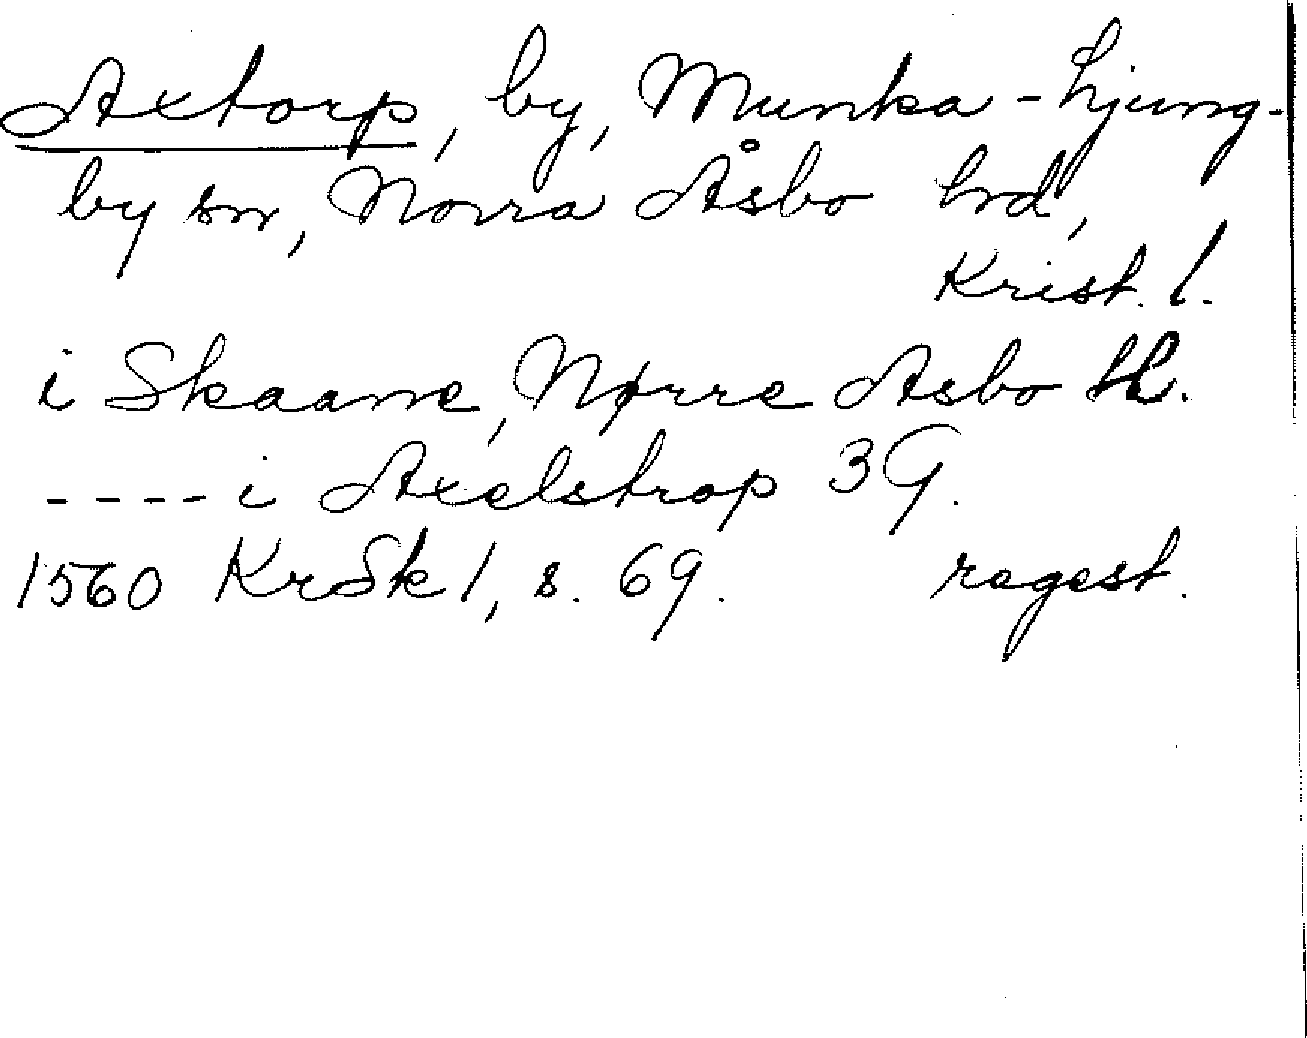 Axtorp, by, Munka-Ljung-
by sn, Norra Åsbo hrd,
Krist. l.
i Skaane, Nørre Asbo H.
---- i Axelstrop 3 G.
1560 KrSk 1, s. 69. regest.